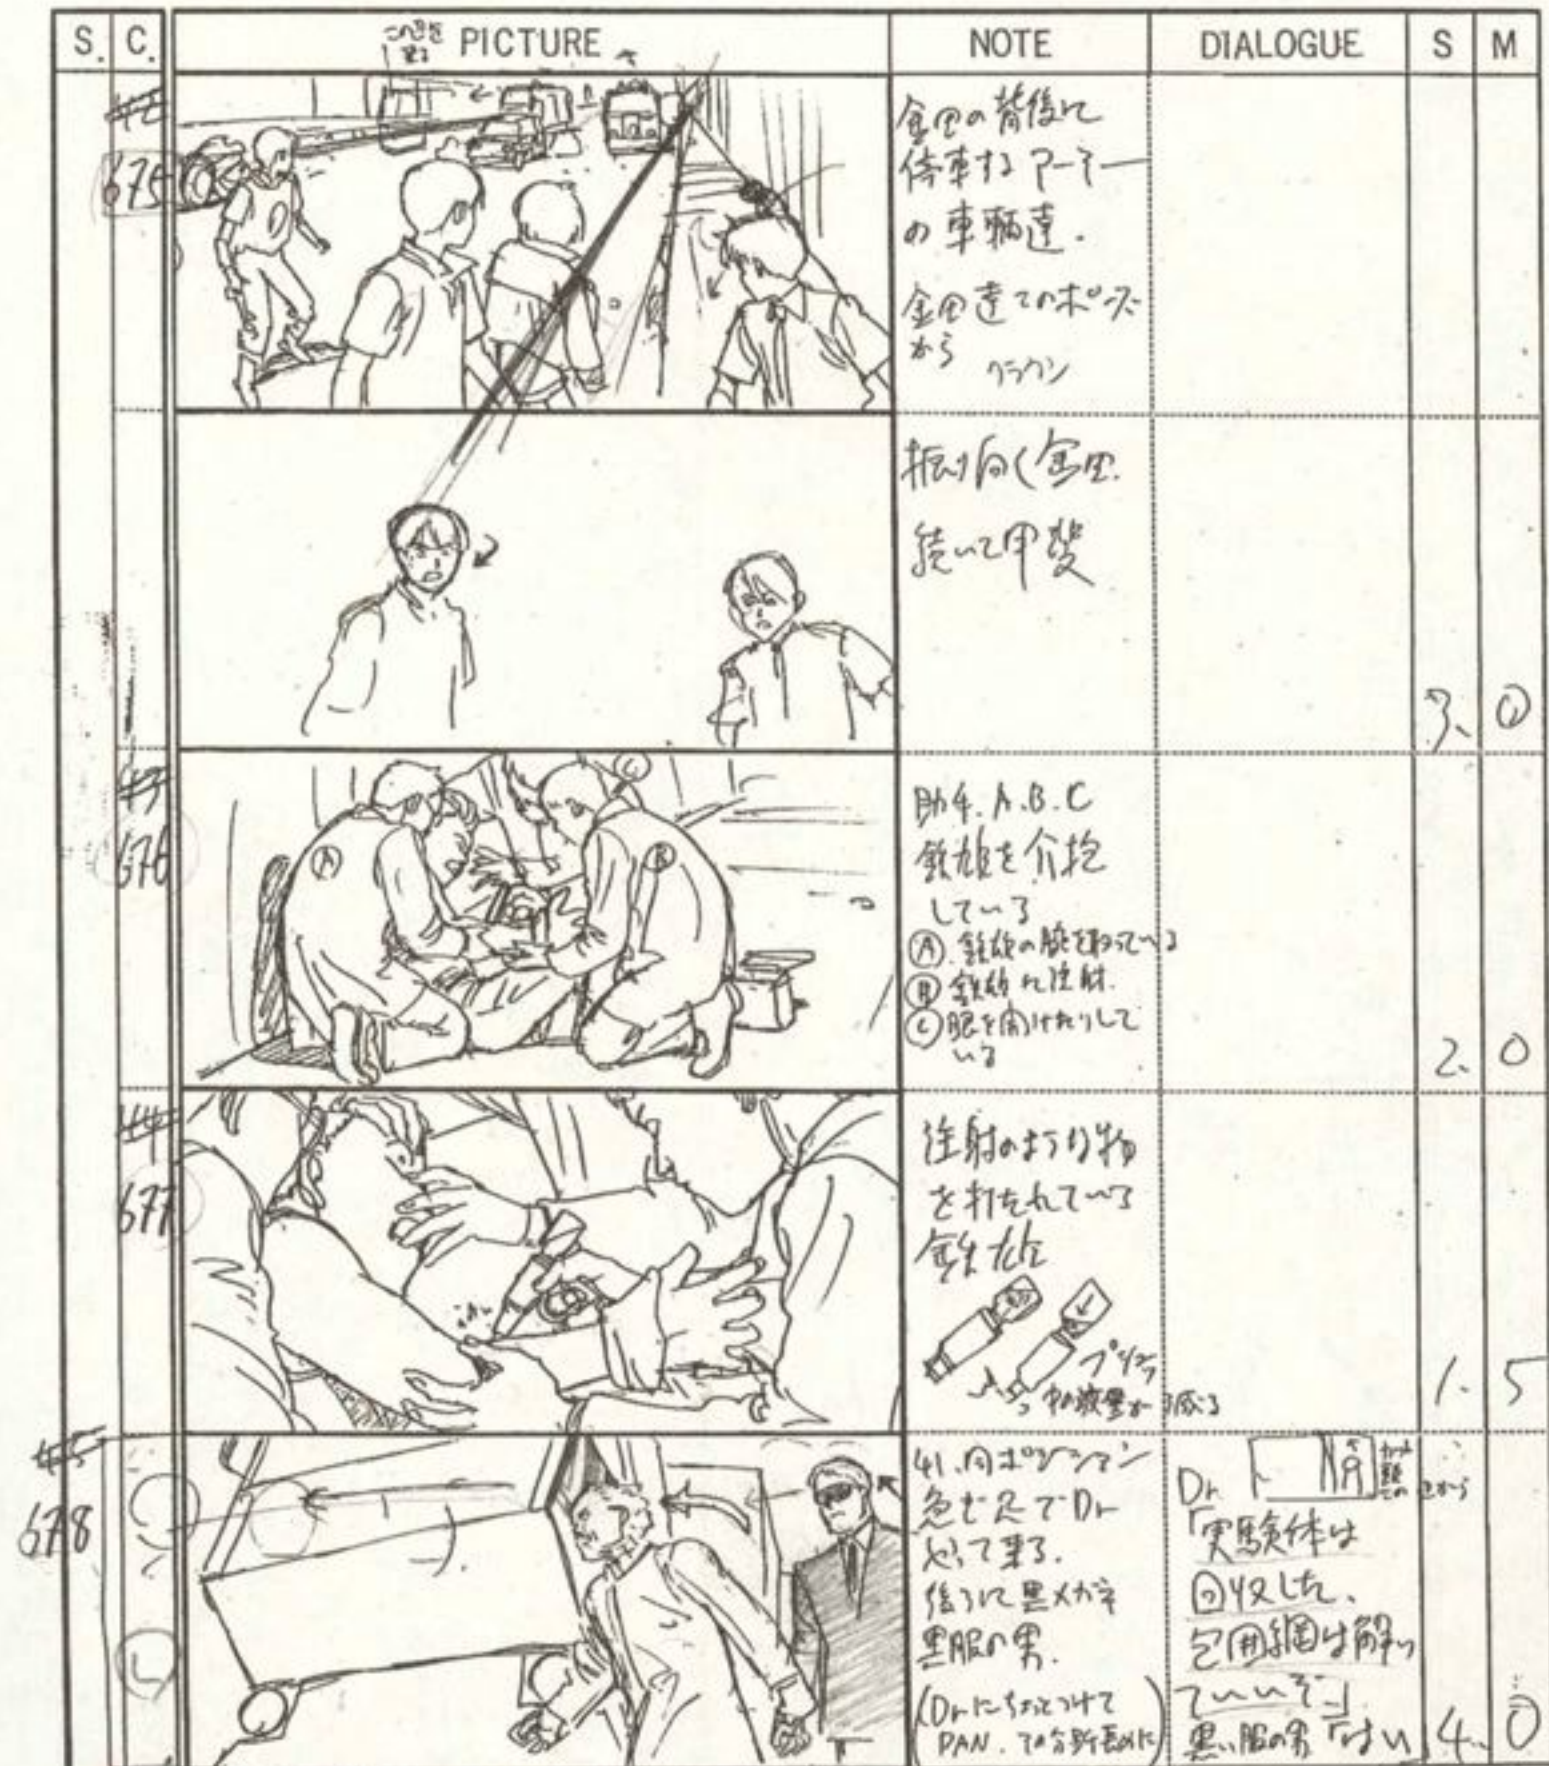 S. C. PICTURE NOTE DIALOGUE S M
675
金田の背後に
停車するアーミー
の車輌達.
金田達でのポーズ
から
クラクション
振り向く金田.
続いて甲斐
3. 0
676
助手.A.B.C
鉄雄を介抱
している
Ⓐ 鉄雄の腕を取っている
Ⓑ 鉄雄に注射.
Ⓒ 眼を開けたりして
いる
Ⓐ
Ⓑ
Ⓒ
2. 0
677
注射のような物
を打たれている
鉄雄
1. 5
678
41.同ポジション
急ぎ足でDr
やって来る.
後ろに黒メガネ
黒服の男.
Dr.
「実験体は
回収した、
包囲網は解い
ていいぞ」
黒い服の男「はい
4. 0